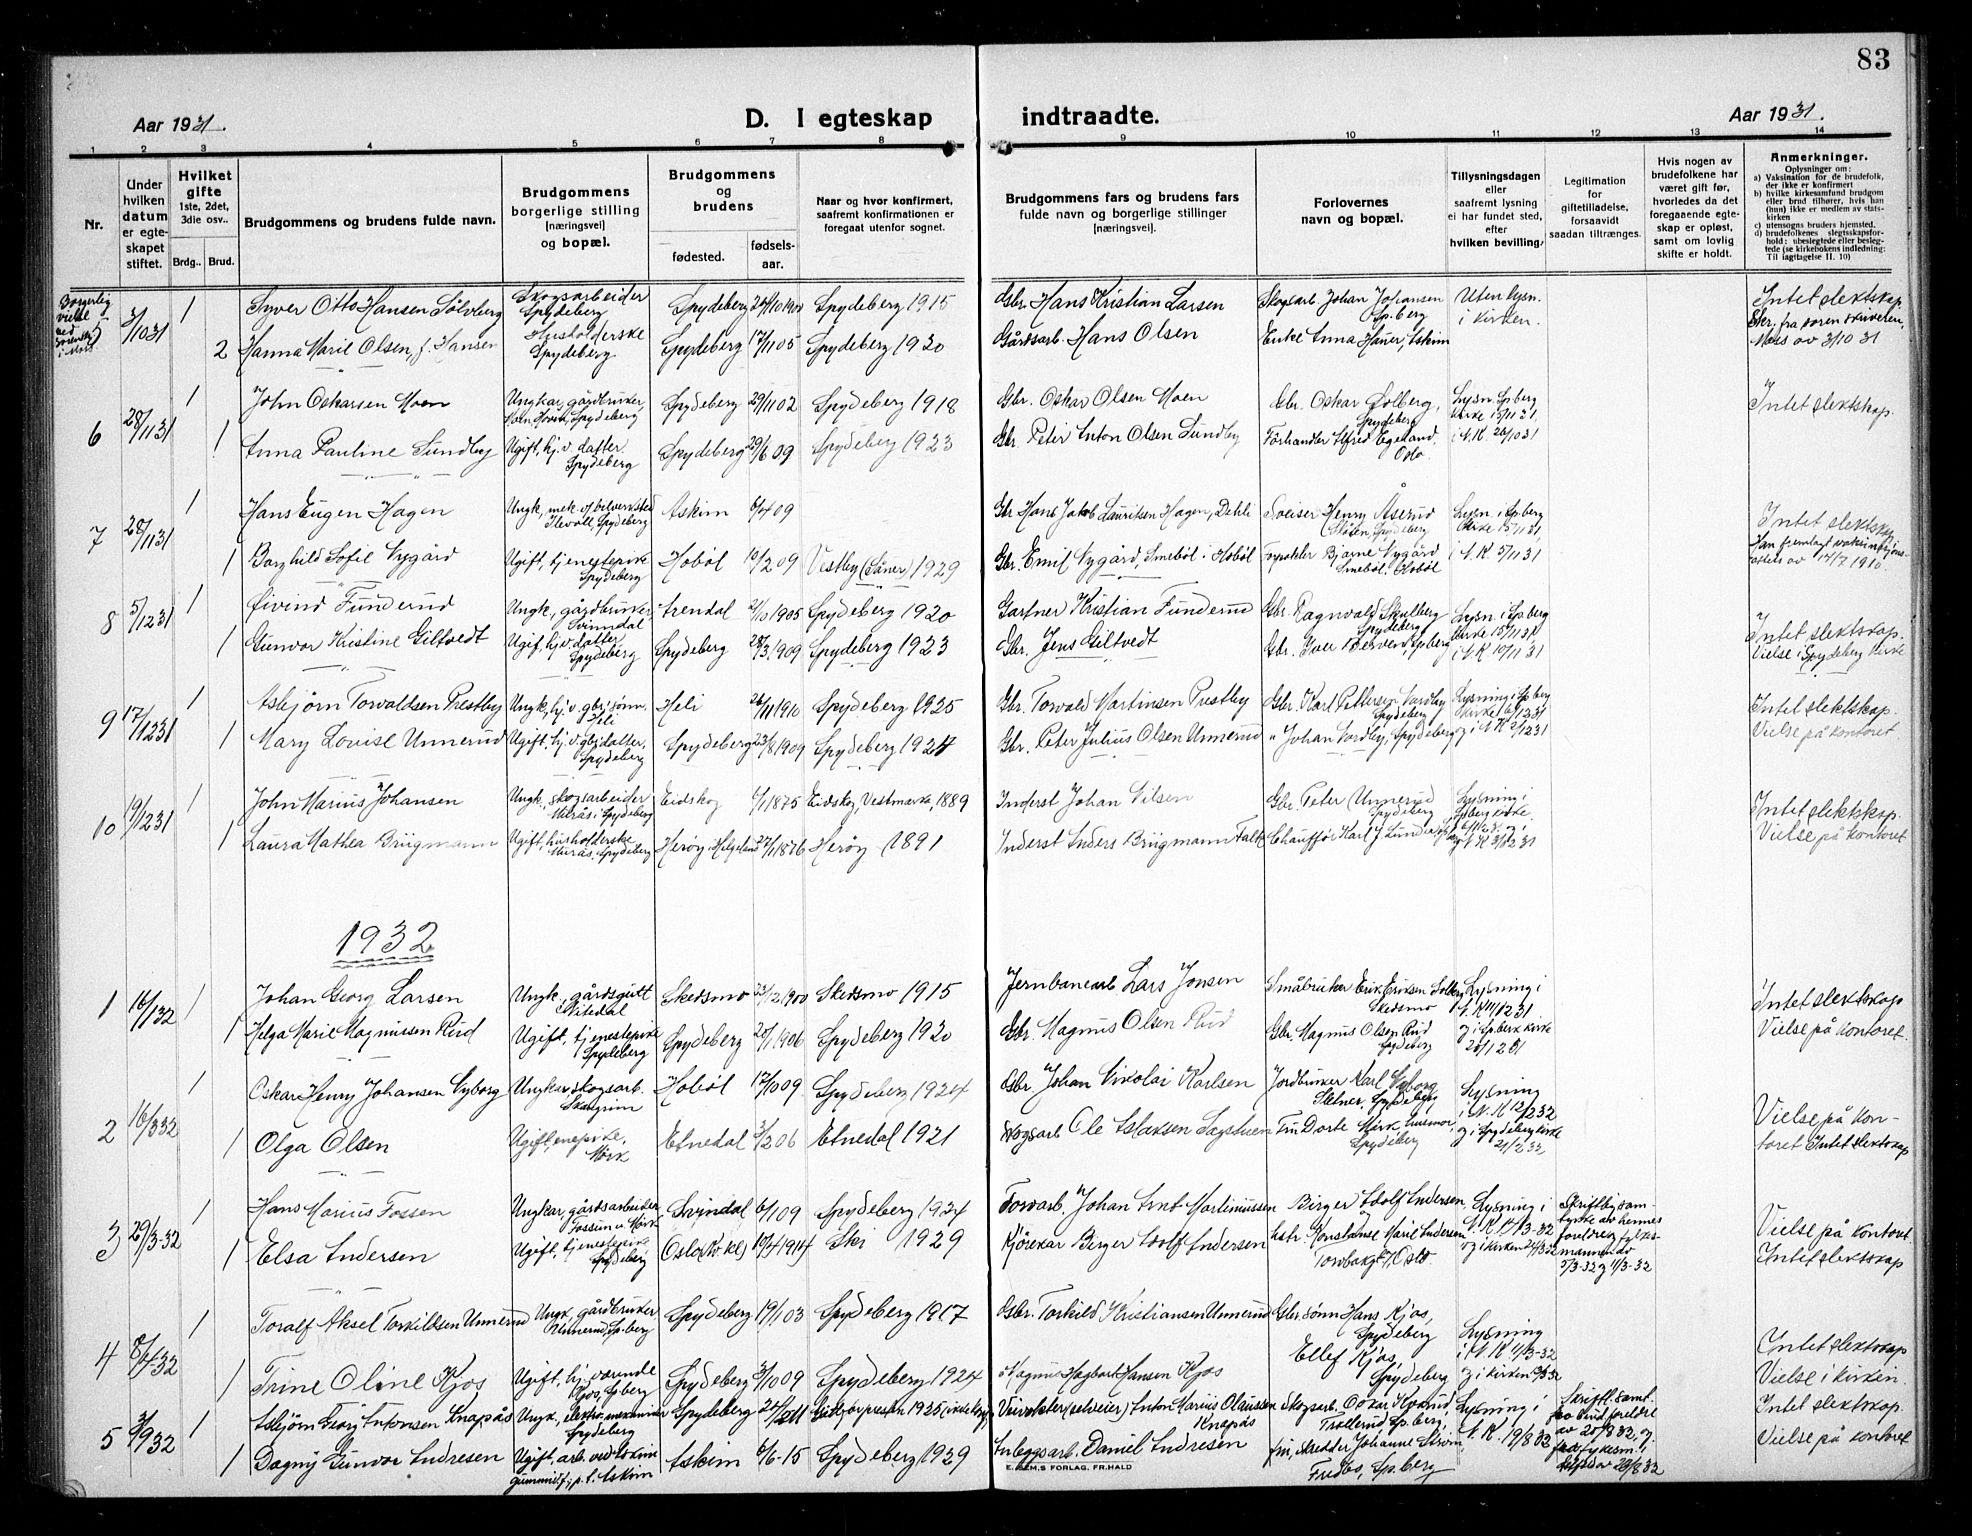 83
Aar 1931.
D. I egteskap indtraadte.
Aar 1931.
1 2 3 4 5 6 7 8 9 10 11 12 13 14
Nr.
Under hvilken datum er egteskapet stiftet.
Hvilket gifte 1ste, 2det, 3die osv..
Brdg.. Brud.
Brudgommens og brudens fulde navn.
Brudgommens borgerlige stilling (næringsvei) og bopæl.
Brudgommens og brudens
fødested.
fødselsaar.
Naar og hvor konfirmert, saafremt konfirmationen er foregaat utenfor sognet.
Brudgommens fars og brudens fars fulde navn og borgerlige stillinger (næringsvei).
Forlovernes navn og bopæl.
Tillysningsdagen eller saafremt lysning ei har fundet sted, efter hvilken bevilling,
Legitimation for giftetilladelse, forsaavidt saadan tiltrænges.
Hvis nogen av brudefolkene har været gift før, hvorledes da det foregaaende egteskap er opløst, samt om lovlig skifte er holdt.
Anmerkninger.
Oplysninger om:
a) Vaksination for de brudefolk, der ikke er konfirmert
b) hvilke kirkesamfund brudgom eller brud tilhører, hvis han (hun) ikke er medlem av statskirken
c) utensogns bruders hjemsted.
d) brudefolkenes slegtsskapsforhold: ubeslegtede eller beslegtede (se kirkebokens indledning: Til iagttagelse II. 10)
Borgerlig vielse
3/10 31 1 Syver Otto Hansen Sølvberg Skogsarbeider Spydeberg Spydeberg 24/10 1900 Spydeberg 1915 Gbr. Hans Kristian Larsen Skogsarb. Johan Johansen Sp.berg Uten lysn. i kirken. Intet slektskap
2 Hanna Marie Olsen, f. Hansen Husholderske Spydeberg Spydeberg 17/11 05 Spydeberg 1920 Gårdsarb. Hans Olsen Enke Anna Askim Moss av 3/10 31
6 28/11 31 1 John Oskarsen Moen Ungkar, gårdbruker Spydeberg Spydeberg 29/11 02 Spydeberg 1918 Gbr. Oskar Olsen Moen Gbr. Oskar Solberg, Spydeberg Lysn. Sp.berg kirke 15/11 31, Intet slektskap.
1 Anna Pauline Sundby Ugift, hj.v. datter Spydeberg Spydeberg 29/6 09 Spydeberg 1923 Gbr. Peter Anton Olsen Sundby Forhandler Alfred Egeland. Oslo. i N.K. 26/10 31
7 28/11 31 1 Hans Eugen Hagen Ungk, mek. v/bilverksted Spydeberg Askim 6/4 09 Gbr Hans Jakob Lauritsen Hagen, Dehli Sveiser Henry Åserud Spydeberg Lysn. i Sp.berg kirke 15/11 31, Intet slektskap
1 Borghild Sofie Nygård Ugift, tjenestepike Spydeberg Hobøl 10/2 09 Vestby (Såner) 1929 Gbr. Emil Nygård, Smebøl i Hobøl Bjarne Nygård Smebøl. Hobøl i N.K 5/11 31
8 5/12 31 1 Øivind Funderud Ungk., gårdbruker, Svinndal Arendal 2/10 1905 Spydeberg 1920 Gartner Kristian Funderud Gbr. Ragnvald Skulberg Spydeberg Lysn i Sp.berg kirke 15/11 31, Intet slektskap.
1 Gunvor Kristine Giltvedt Ugift, hj.v. datter Spydeberg Spydeberg 28/3 1909 Spydeberg 1923 Gbr. Jens Giltvedt Gbr. Iver Sp.berg i N.K 10/11 31 Vielse i Spydeberg kirke
9 17/12 31 1 Asbjørn Torvaldsen Prestby Ungk., hj.v. gbr.sønn. Heli Heli 26/11 1910 Spydeberg 1925 Gbr. Torvald Martinsen Prestby Gbr. Karl Pettersen Vardby Spydeberg Lysning i Sp.berg kirke Intet slektskap.
1 Mary Lovise Unnerud Ugift, hj.v. gbr.datter. Spydeberg Spydeberg 23/8 1909 Spydeberg 1924 Gbr. Peter Julius Olsen Unnerud " Johan Vordby, Spydeberg og i N.K 2/12 31 Vielse på kontoret
10 19/12 31 1 John Marius Johansen Ungk., skogsarbeider Spydeberg Eidskog 1/1 1875 Eidskog, Vestmarka, 1889 Inderst Johan Nilsen Gbr. Peter Unnerud Spydeberg Lysning i Spberg kirke Intet slektskap.
1 Laura Mathea Brügmann Ugift, husholderske Spydeberg Herøy i Helgeland 27/1 1876 Herøy 1891 Inderst Anders Brügmann Falk Chauffør Karl J. Lunde N.K 3/12 31 Vielse på kontoret
1932
1 16/1 32 1 Johan Georg Larsen Ungk., gårdsgutt Nitedal Skedsmo 23/12 1900 Skedsmo 1915 Jernbanearb Lars Jonsen Småbruker Erik Eriksen Solberg Skedsmo Lysning i N.K 11/12 31 Intet slektskap
1 Helga Marie Magnussen Rud Ugift, tjenestepike Spydeberg Spydeberg 20/1 1906 Spydeberg 1920 Gbr. Magnus Olsen Rud Gbr. Magnus Olsen Rud Spydeberg og i Sp.berg kirke Vielse på kontoret.
2 16/3 32 1 Oskar Henry Johansen Nyborg Ungkar, skogsarb. Skangrim Hobøl 17/10 09 Spydeberg 1924 Gbr Johan Nikolai Karlsen Jordbruker Karl Nyborg Spydeberg Lysning i N.K 12/2 32 Vielse på kontoret Intet slektskap
1 Olga Olsen Ugift, Mørk Etnedal 3/2 06 Etnedal 1921 Skogsarb Ole Aslaksen Sagstuen Fru Dorte Mørk, Spydeberg og i Spydeberg kirke 21/2 32
3 29/3-32 1 Hans Marius Fossen Ungkar, gårdsarbeider Svindal 6/1 09 Spydeberg 1924 Torvarb. Johan Arnt Martinussen Birger Adolf Andersen Lysning i N.K 17/3-32 Skriftlig samtykke av hennes foreldre og fylkesmannen av 5/3-32 og 11/3-32 Vielse på kontoret
1 Elsa Andersen Ugift, tjenestepike Spydeberg Oslo 10/4 1914 Ski 1929 Kjørekar Birger Adolf Andersen hstr. Konstanse Marie Andersen Oslo. og i kirken Intet slektskap
4 8/4-32 1 Toralf Aksel Torkildsen Unnerud Ungk, gårdbruker Unnerud, Sp.berg Spydeberg 19/1 03 Spydeberg 1917 Gbr. Torkild Kristiansen Unnerud Gbr.sønn Hans Kjos, Spydeberg Lysning i N.K 11/3-32 Intet slektskap
1 Trine Oline Kjos Ugift, hj.værende Kjos, Sp.berg Spydeberg 3/10 09 Spydeberg 1924 Magnus Hagbart Hansen Kjos Ellef Kjos, Spydeberg og i kirken Vielse i kirken.
5 3/9 32 1 Asbjørn Georg Antonsen Knapås Ungk., elektro-mekaniker Spydeberg Spydeberg Anton Marius Olaussen Knapås Skogsarb. Oskar Sp.berg, Lysning i N.K. 19/8 32 Skriftl. samt. Intet slektskap.
1 Dagny Gunvor Andresen Ugift, arb. ved Askim gummiif., p.t. Askim Askim 6/6-15 Spydeberg 1929 Anleggsarb. Daniel Andresen Johanne Strøm Fredbo, Sp.berg Vielse på kontoret
E. SEM,S FORLAG, FR.HALD